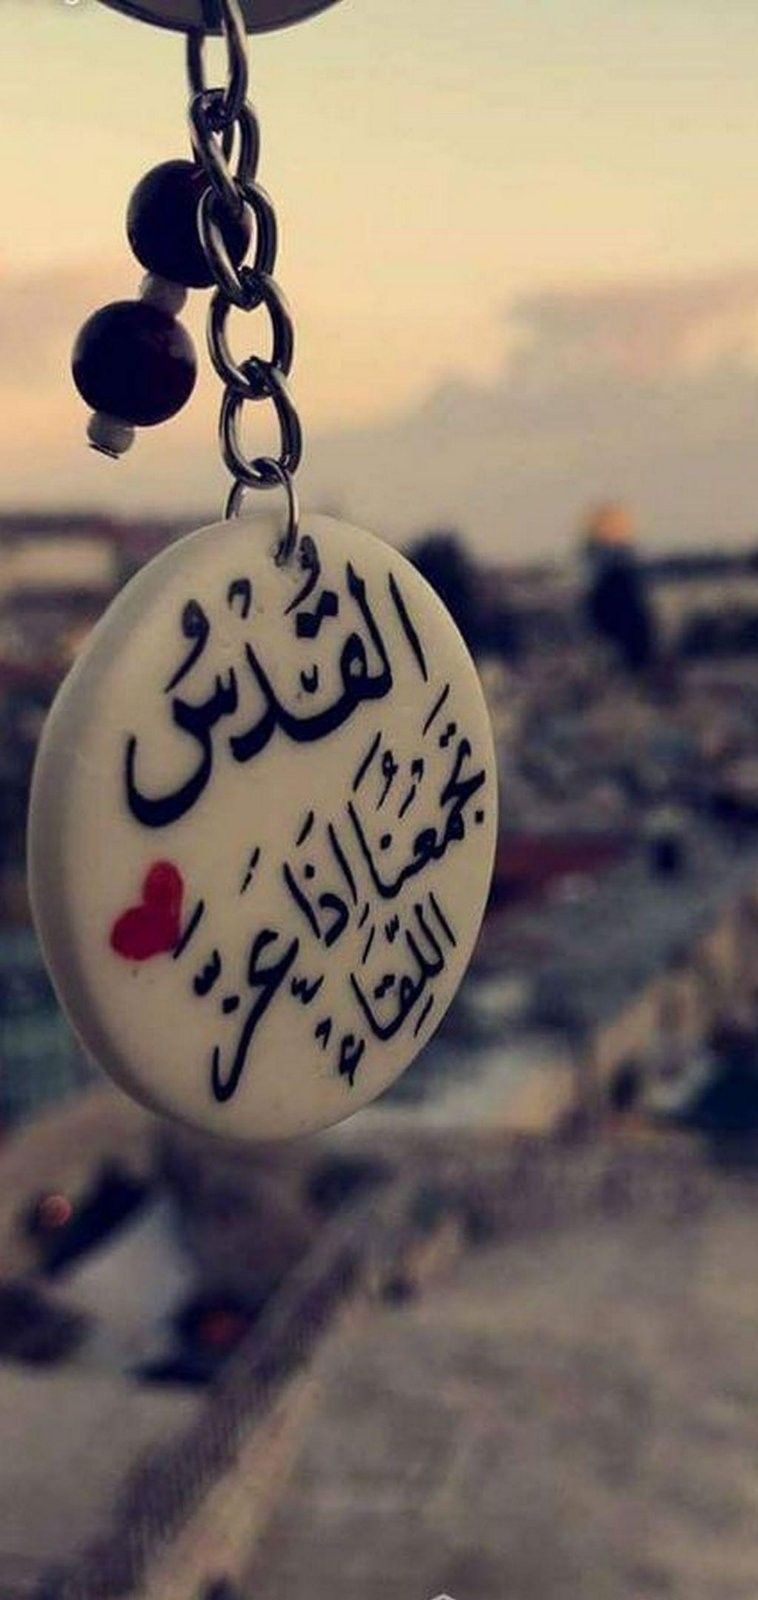 القُدْسُ
تَجْمَعُنَا إذَا عَزَّ
اللِّقَاءُ